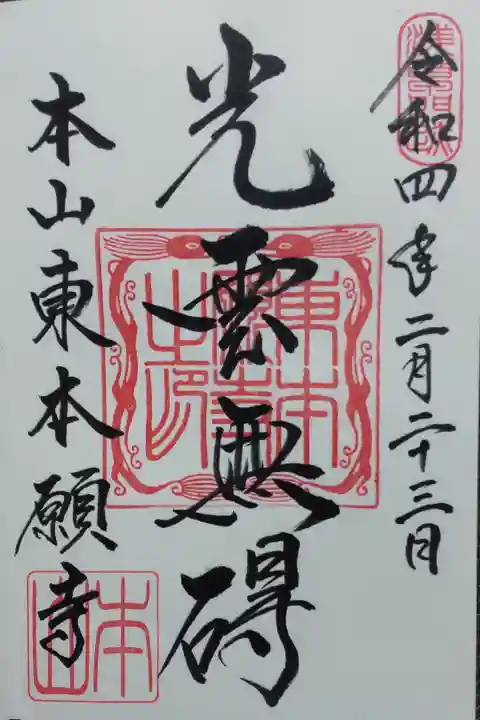 令和四年二月二十三日
光雲無碍
本山東本願寺
東本願寺之印
本山